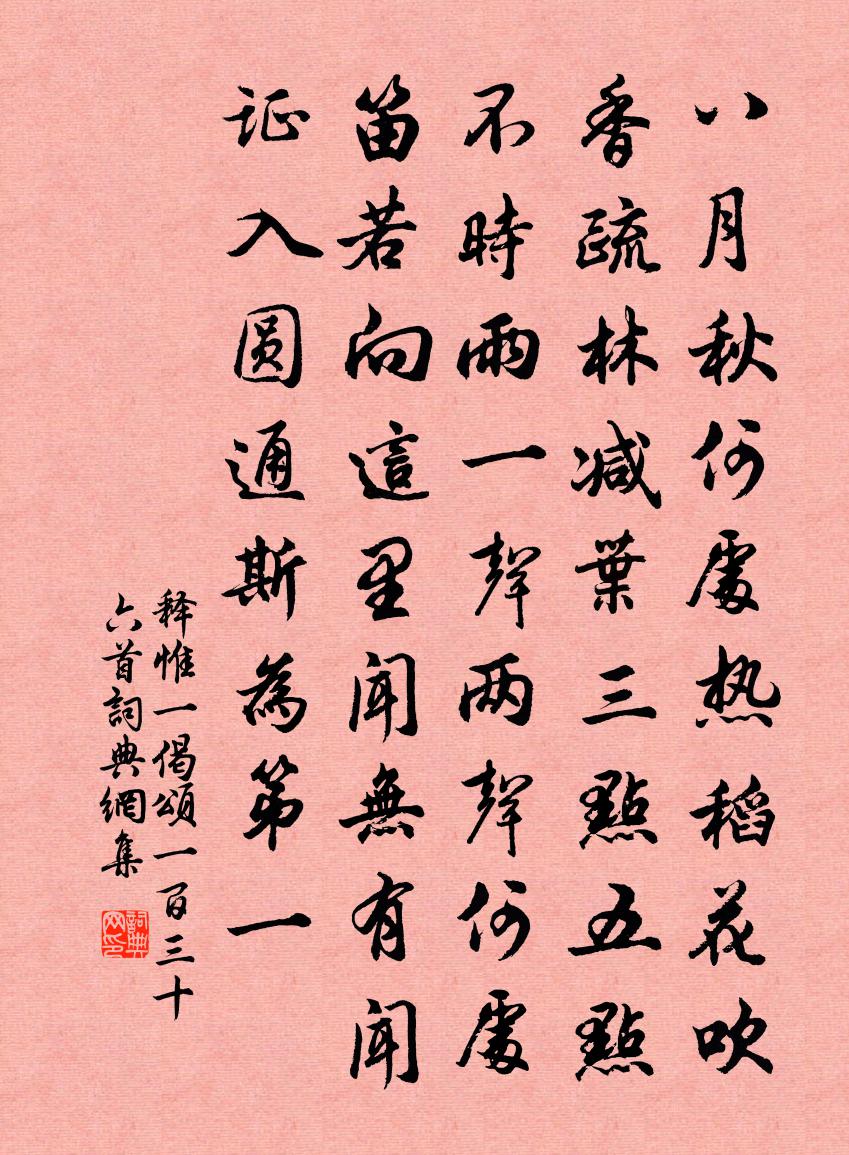 八月秋何處热稻花吹
香疏林减葉三點五點
不時雨一聲两聲何處
笛若向這里聞無有聞
证入圆通斯為第一
释惟一偈頌一百三十
六首詞典網集
詞典
网印